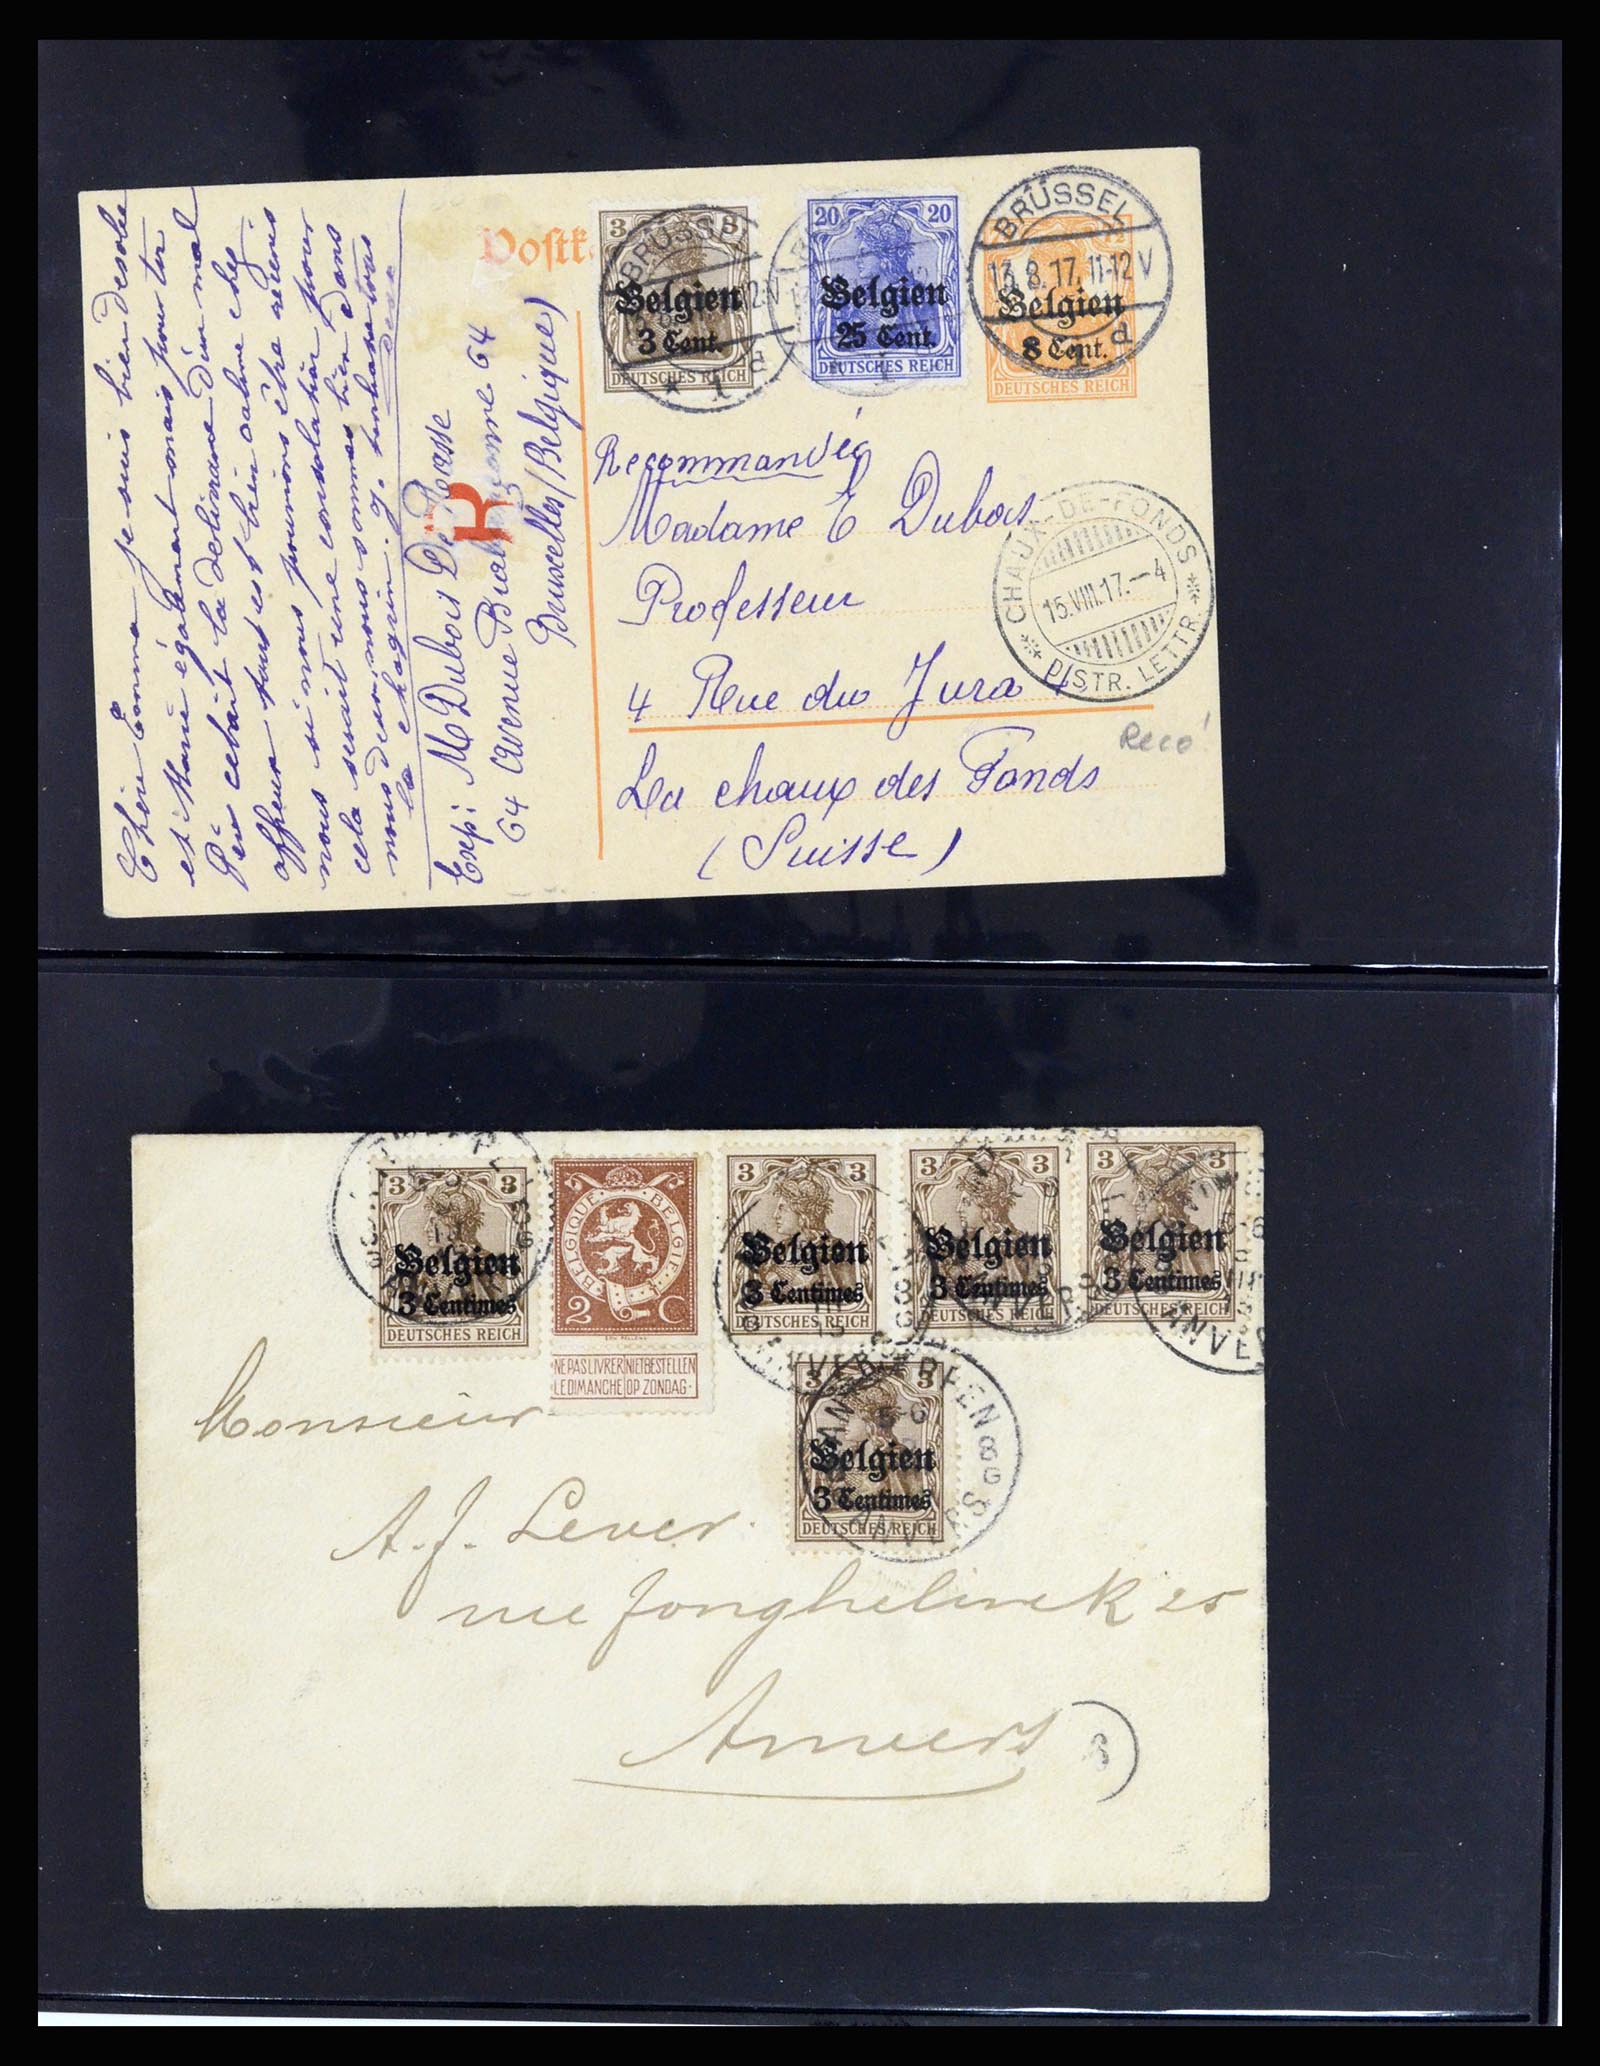 Chère Emma je suis bien desolée
et Marie également mais pour ton
Père cetait la delivrance d'un mal
affreux tout est bien calme chez
nous si nous pourrions être réunis
cela serait une consolation pour
nous deux nous sommes bien dans
la chagrin. J. embrasse tous
Exp: M Dubois De
64 Avenue 64
Bruxelles (Belgique)
R
Postk
3 3
Belgien
3 Cent.
DEUTSCHES REICH
BRÜSS
1 d
20 20
Belgien
25 Cent.
DEUTSCHES REICH
7½
Belgien
8 Cent.
DEUTSCHES REICH
BRÜSSEL
13.8.17.11-12V
1 d
Recommandée
Madame E Dubois
Professeur
4 Rue du Jura 4,
La chaux des Fonds
(Suisse)
CHAUX-DE-FONDS
15.VIII.17.—4
DISTR. LETTR.
Reco!
3 3
Belgien
3 Centimes
DEUTSCHES REICH
BELGIQUE·BELGIË
2 C
NE PAS LIVRER NIET BESTELLEN
LE DIMANCHE OP ZONDAG·
3 3
Belgien
3 Centimes
DEUTSCHES REICH
3 3
Belgien
3 Centimes
DEUTSCHES REICH
3 3
Belgien
3 Centimes
DEUTSCHES REICH
3 3
Belgien
3 Centimes
DEUTSCHES REICH
Monsieur
A. J. Lever.
rue Jonghelinck 25
Anvers